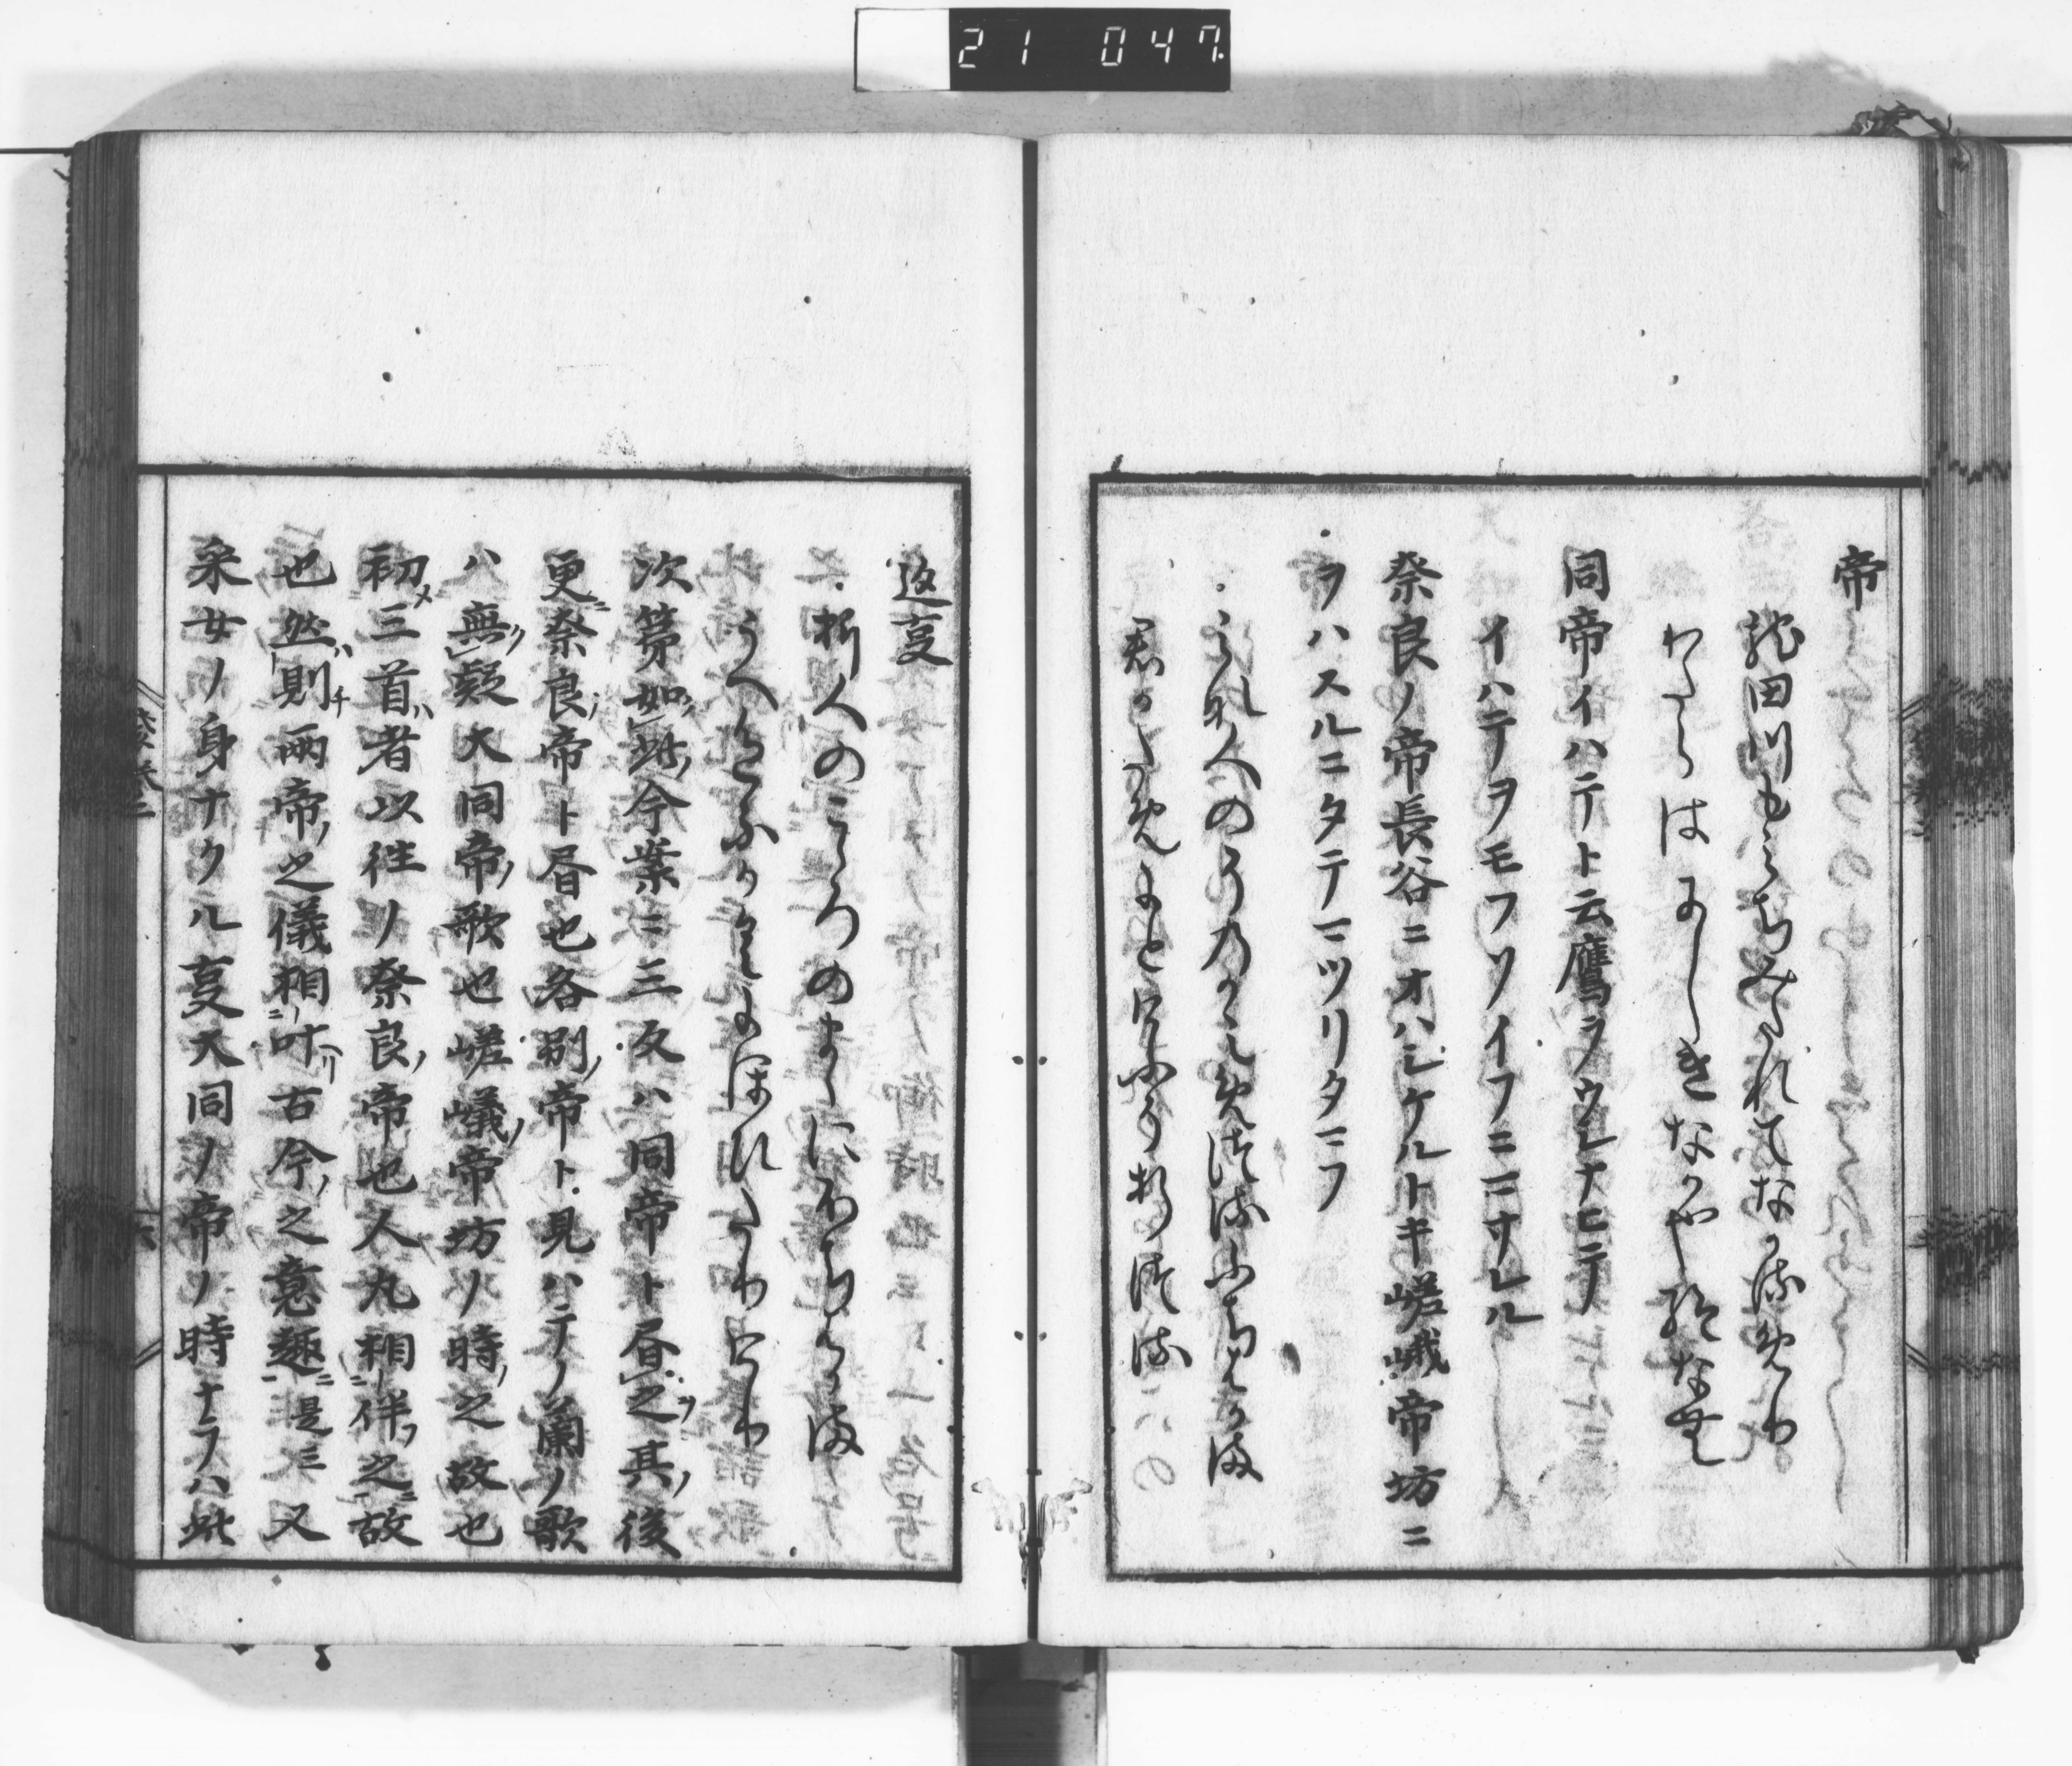 21 047
帝
龍田川もみちみたれてなかるめり
わたらはにしきなかや絶なむ
同帝イハテト云鷹ヲウシナヒテ
イハテヲモフソイフニマサレル
奈良ノ帝長谷ニオハシケルトキ嵯峨帝坊ニ
ヲハスルニタテマツリタマフ
みな人のその香にめつるふちはかま
君のためにと手折たる
返事
折人のこゝろのまゝにふちはかま
うへ色ふかくにほひたりけり
次第如此今案ニ三反ハ同帝ト昏之其後
更奈良帝ト昏也各別帝ト見ハテノ蘭ノ歌
ハ無疑大同帝歌也嵯峨帝坊ノ時之故也
初三首者以往ノ奈良帝也人丸相伴之故
也然則両帝之儀相叶古今之意趣是三又
采女ノ身ナクル事大同ノ帝ノ時ナラハ此